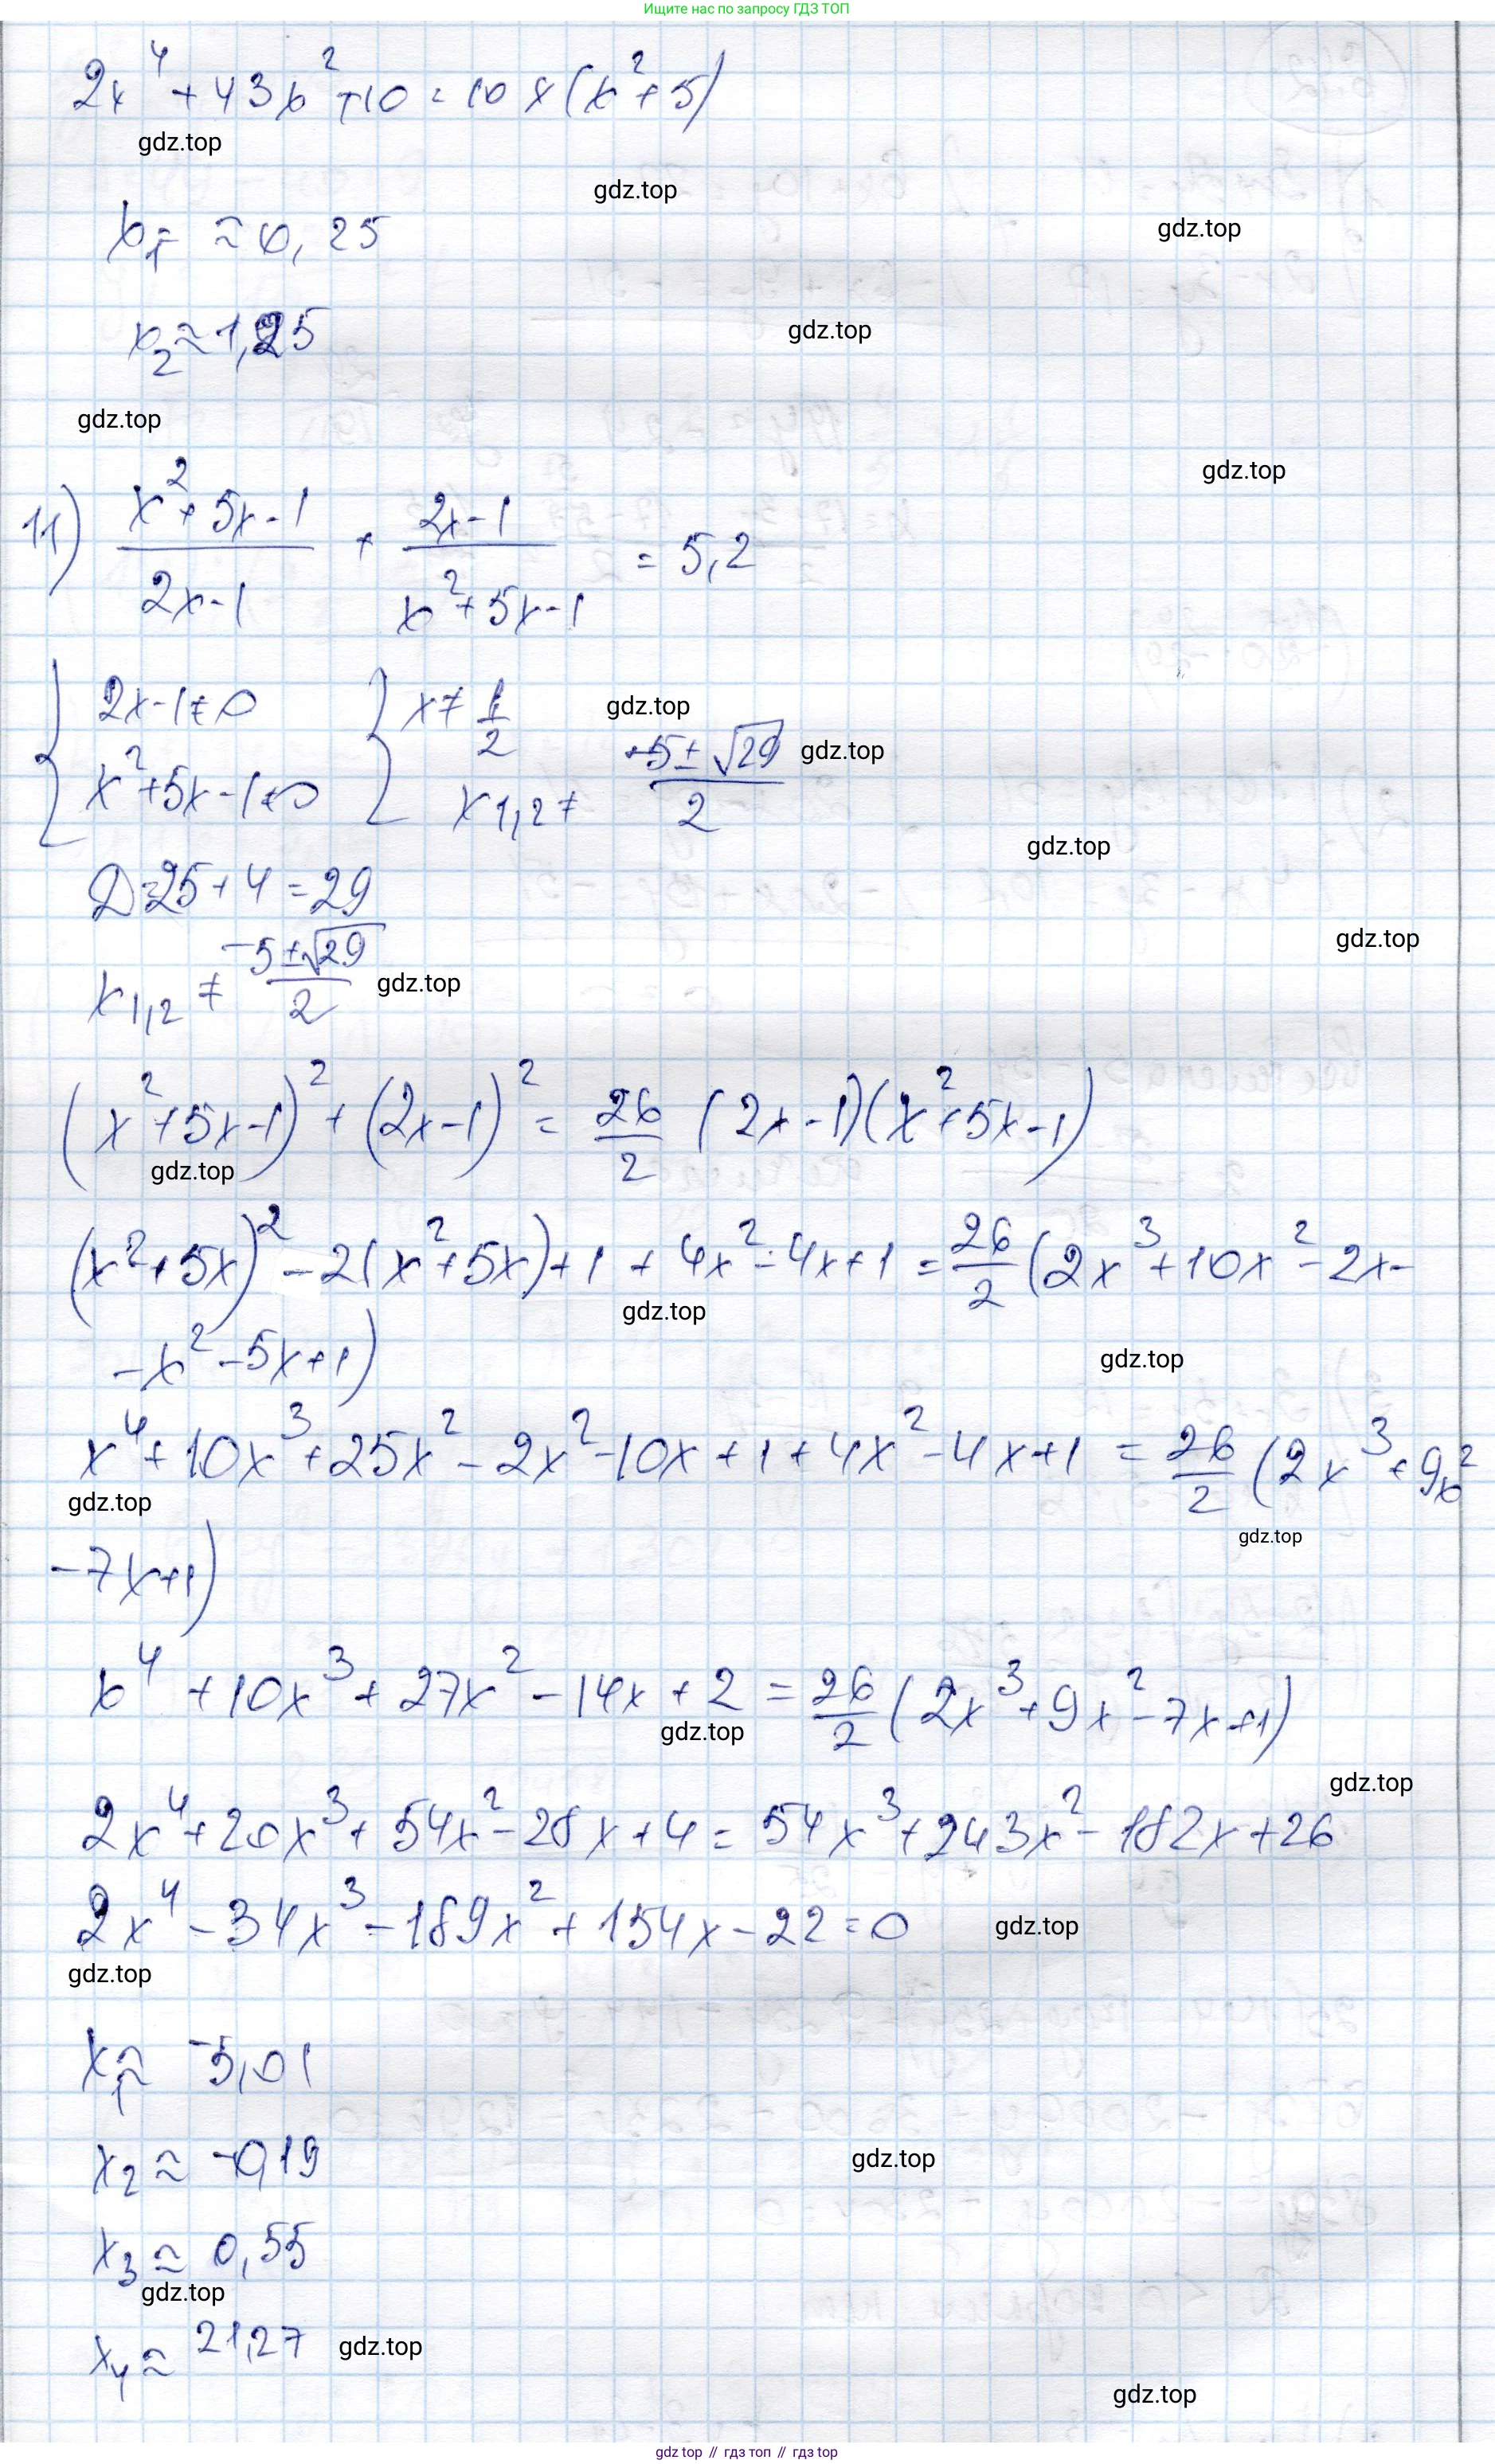 Ищите нас по запросу ГДЗ ТОП
2x⁴ + 43x² + 10 = 10x(x² + 5)
gdz.top
gdz.top
x₁ = ≈ 0,25
gdz.top
x₂ ≈ 1,25
gdz.top
gdz.top
gdz.top
11) (x² + 5x - 1)/(2x - 1) + (2x - 1)/(x² + 5x - 1) = 5,2
{ 2x - 1 ≠ 0 { x ≠ 1/2
gdz.top
x² + 5x - 1 ≠ 0 x₁,₂ ≠ (-5 ± √29)/2
gdz.top
gdz.top
D = 25 + 4 = 29
gdz.top
x₁,₂ ≠ (-5 ± √29)/2
gdz.top
(x² + 5x - 1)² + (2x - 1)² = 26/2 (2x - 1)(x² + 5x - 1)
gdz.top
(x² + 5x)² - 2(x² + 5x) + 1 + 4x² - 4x + 1 = 26/2 (2x³ + 10x² - 2x -
gdz.top
- x² - 5x + 1)
gdz.top
x⁴ + 10x³ + 25x² - 2x² - 10x + 1 + 4x² - 4x + 1 = 26/2 (2x³ + 9x²
gdz.top
gdz.top
- 7x + 1)
x⁴ + 10x³ + 27x² - 14x + 2 = 26/2 (2x³ + 9x² - 7x + 1)
gdz.top
gdz.top
2x⁴ + 20x³ + 54x² - 28x + 4 = 54x³ + 243x² - 182x + 26
2x⁴ - 34x³ - 189x² + 154x - 22 = 0
gdz.top
gdz.top
x₁ ≈ -5,01
x₂ ≈ -0,19
gdz.top
x₃ ≈ 0,55
gdz.top
x₄ ≈ 21,27
gdz.top
gdz.top
gdz top // гдз топ // gdz top